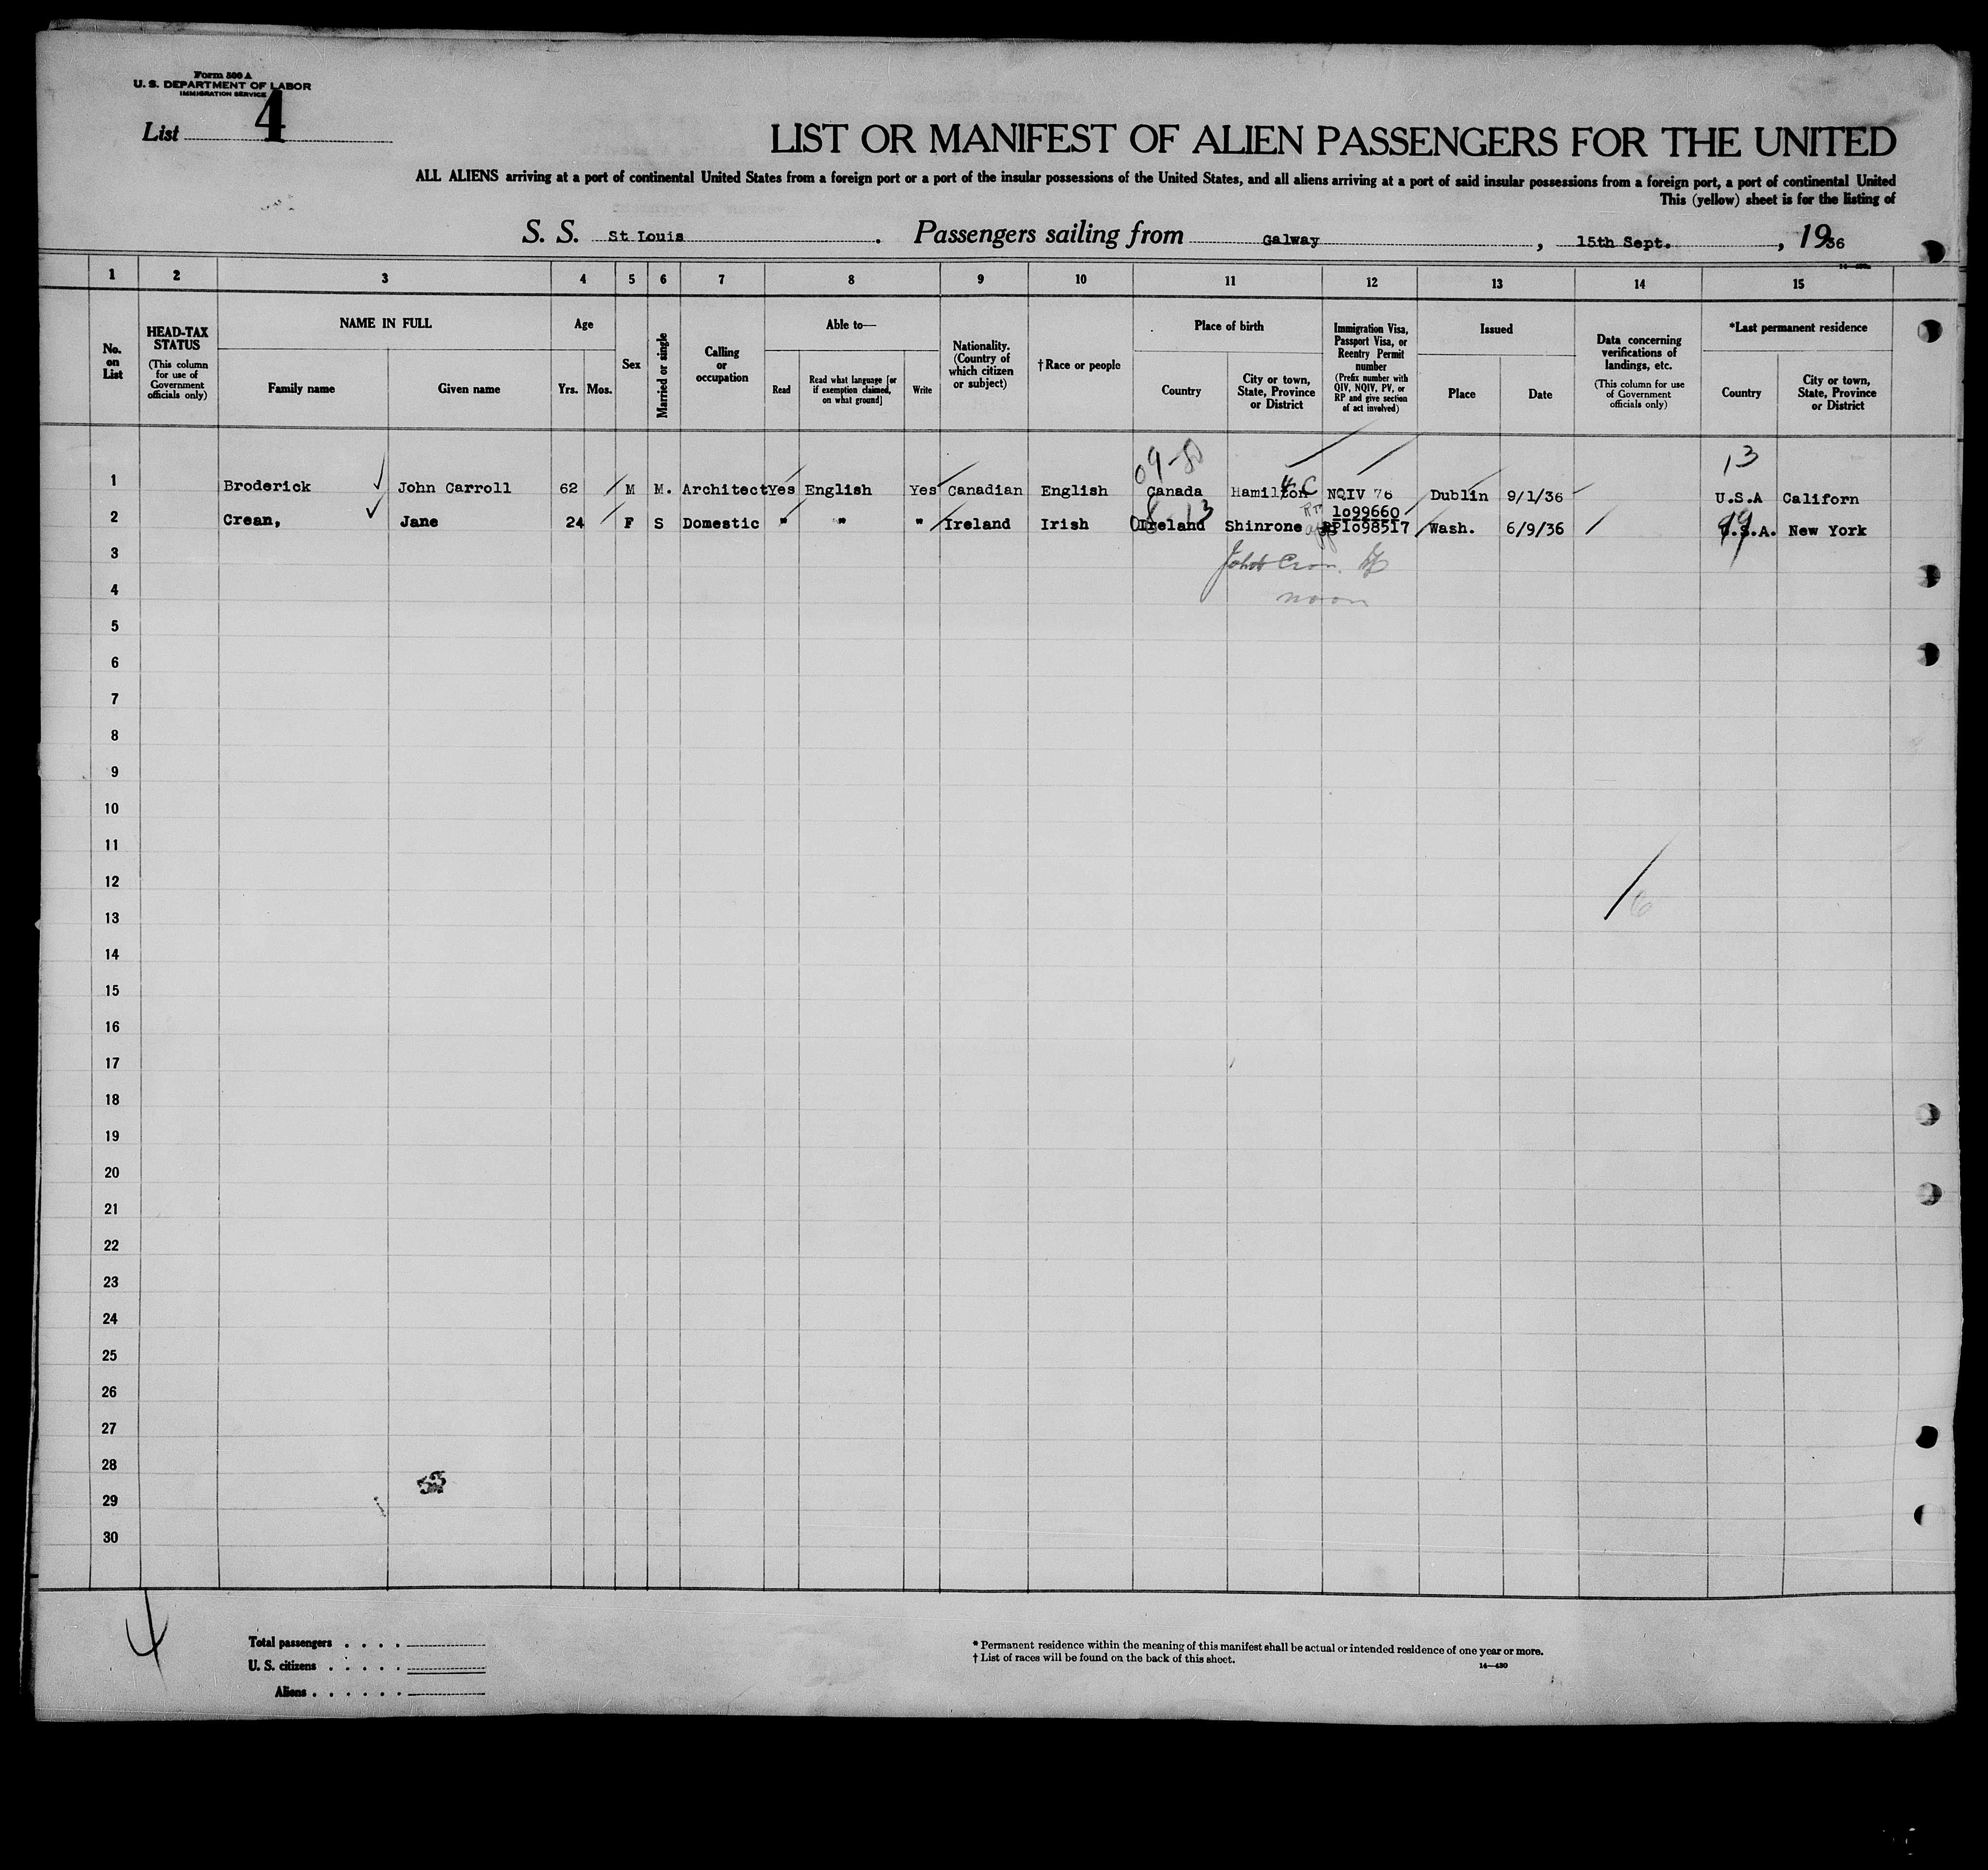 Form 500 A
U. S. DEPARTMENT OF LABOR
IMMIGRATION SERVICE
List 4
LIST OR MANIFEST OF ALIEN PASSENGERS FOR THE UNITED
ALL ALIENS arriving at a port of continental United States from a foreign port or a port of the insular possessions of the United States, and all aliens arriving at a port of said insular possessions from a foreign port, a port of continental United
This (yellow) sheet is for the listing of
S. S. St Louis. Passengers sailing from Galway, 15th Sept., 1936
1 2 3 4 5 6 7 8 9 10 11 12 13 14 15
No. on List
HEAD-TAX STATUS (This column for use of Government officials only)
NAME IN FULL
Family name
Given name
Age
Yrs. Mos.
Sex
Married or single
Calling or occupation
Able to—
Read
Read what language [or if exemption claimed, on what ground]
Write
Nationality. (Country of which citizen or subject)
†Race or people
Place of birth
Country
City or town, State, Province or District
Immigration Visa, Passport Visa, or Reentry Permit number (Prefix number with QIV, NQIV, PV, or RP and give section of act involved)
Issued
Place
Date
Data concerning verifications of landings, etc. (This column for use of Government officials only)
*Last permanent residence
Country
City or town, State, Province or District
09-80 13
1 Broderick John Carroll 62 M M. Architect Yes English Yes Canadian English Canada Hamilton 4 C NQIV 76 Dublin 9/1/36 U.S.A Californ
1099660
2 Crean, Jane 24 F S Domestic " " " Ireland Irish Ireland Shinrone RP1098517 Wash. 6/9/36 U.S.A. New York
3
4 noon
5
6
7
8
9
10
11
12
13
14
15
16
17
18
19
20
21
22
23
24
25
26
27
28
29
30
4
Total passengers . . . .
U. S. citizens . . . . .
Aliens . . . . . .
* Permanent residence within the meaning of this manifest shall be actual or intended residence of one year or more.
† List of races will be found on the back of this sheet.
14—430